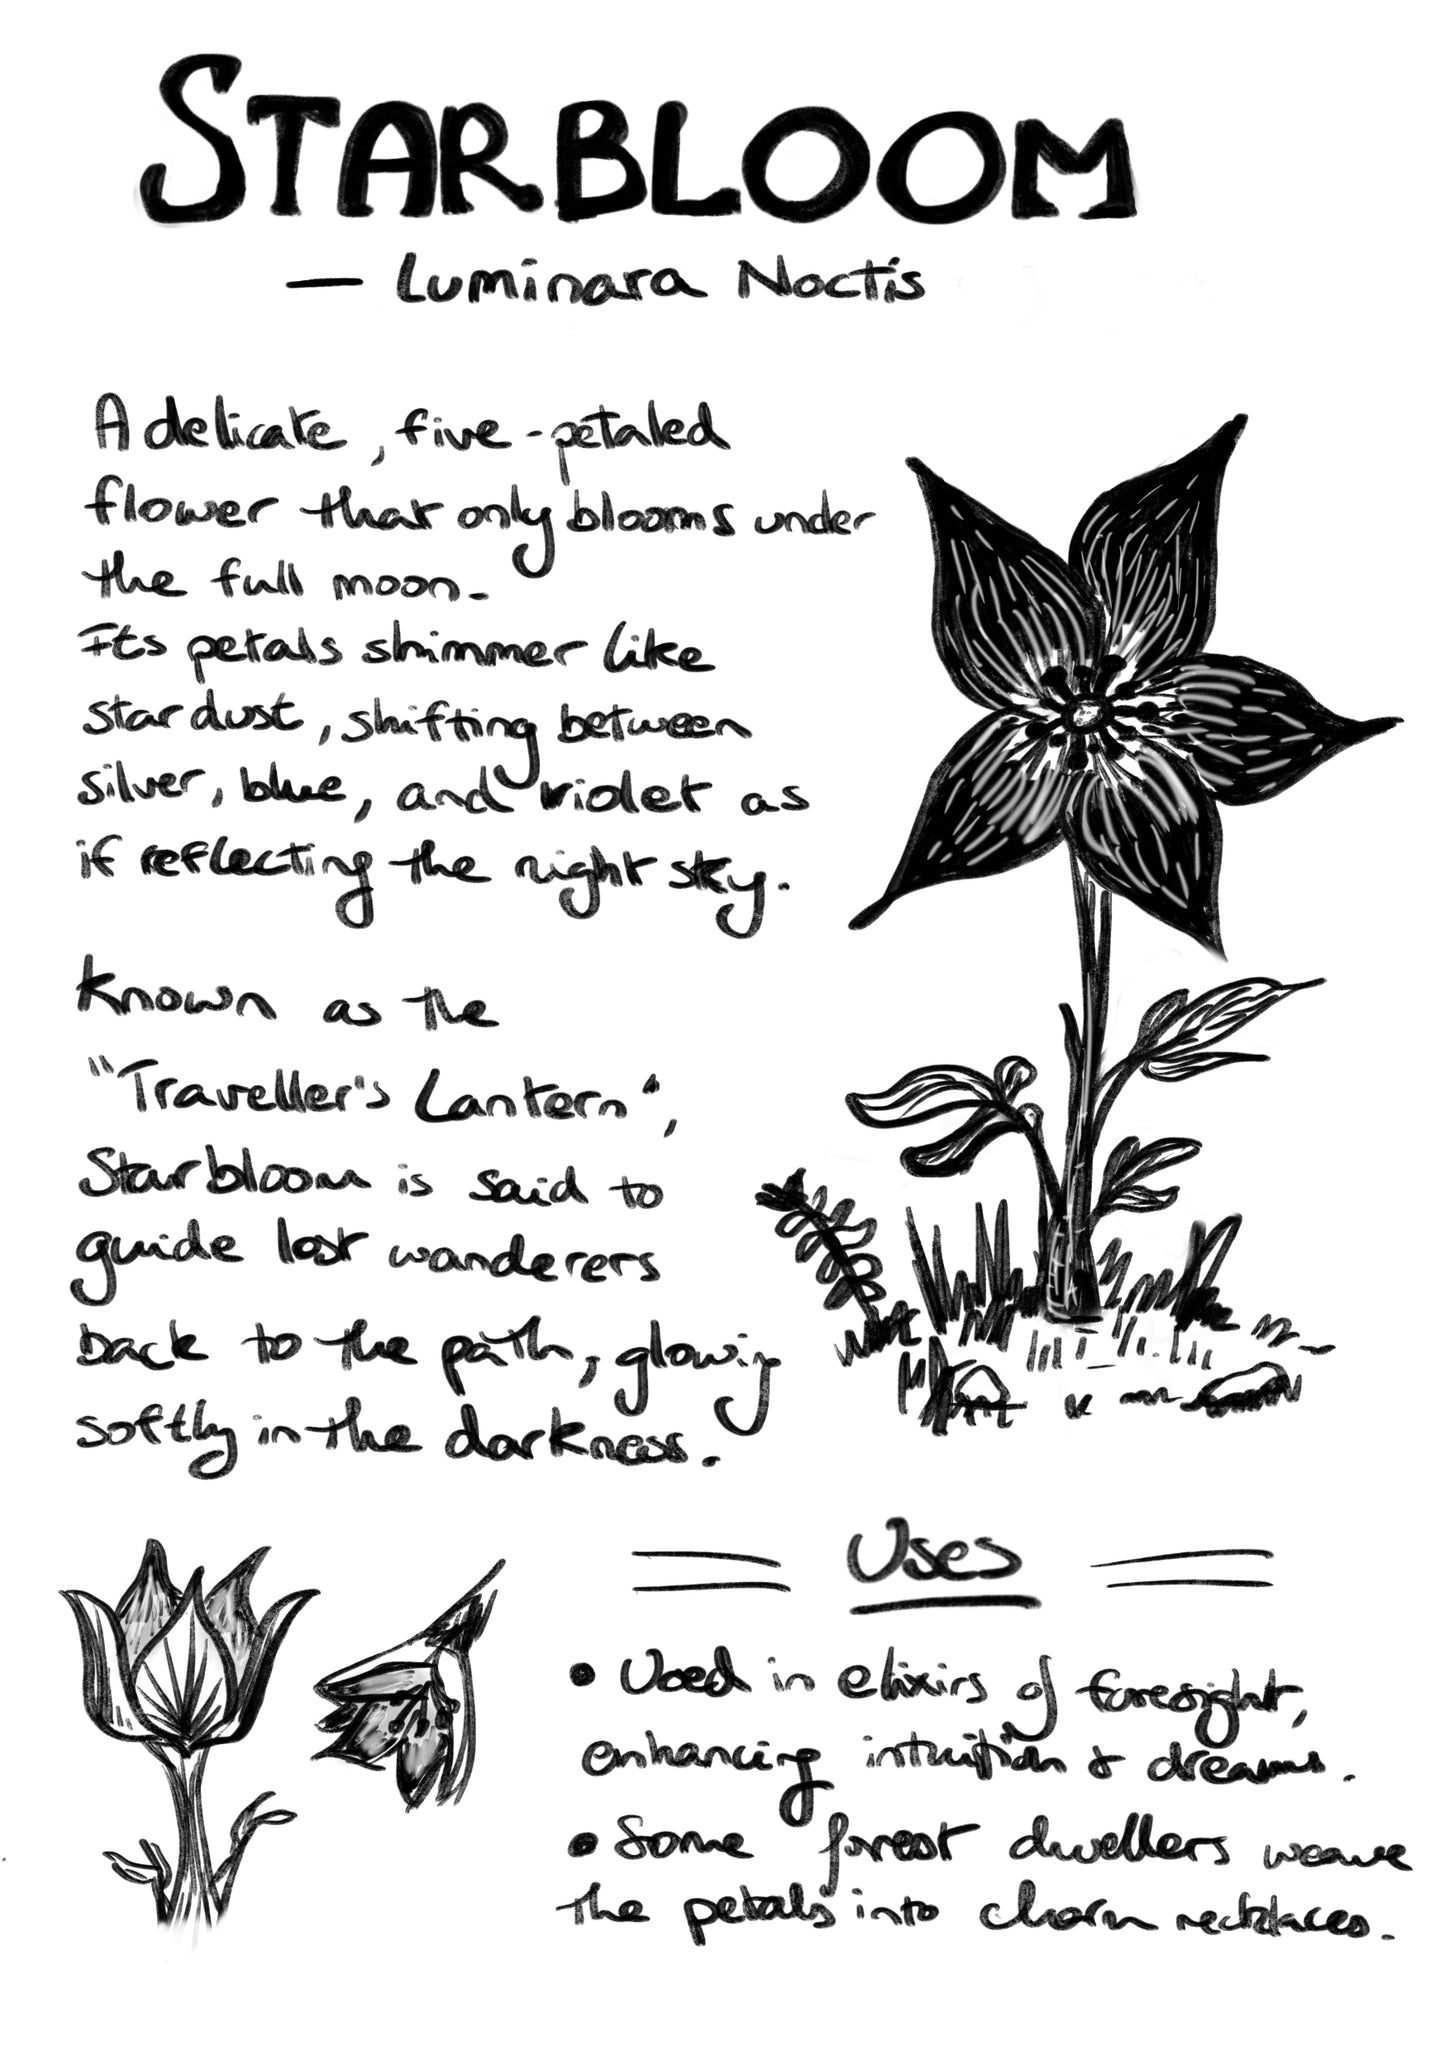 STARBLOOM
— Luminara Noctis
A delicate, five-petaled
flower that only blooms under
the full moon.
Its petals shimmer like
stardust, shifting between
silver, blue, and violet as
if reflecting the night sky.
Known as the
"Traveller's Lantern",
Starbloom is said to
guide lost wanderers
back to the path, glowing
softly in the darkness.
Uses
• Used in elixirs of foresight,
enhancing intuition & dreams.
• Some forest dwellers weave
the petals into charm necklaces.